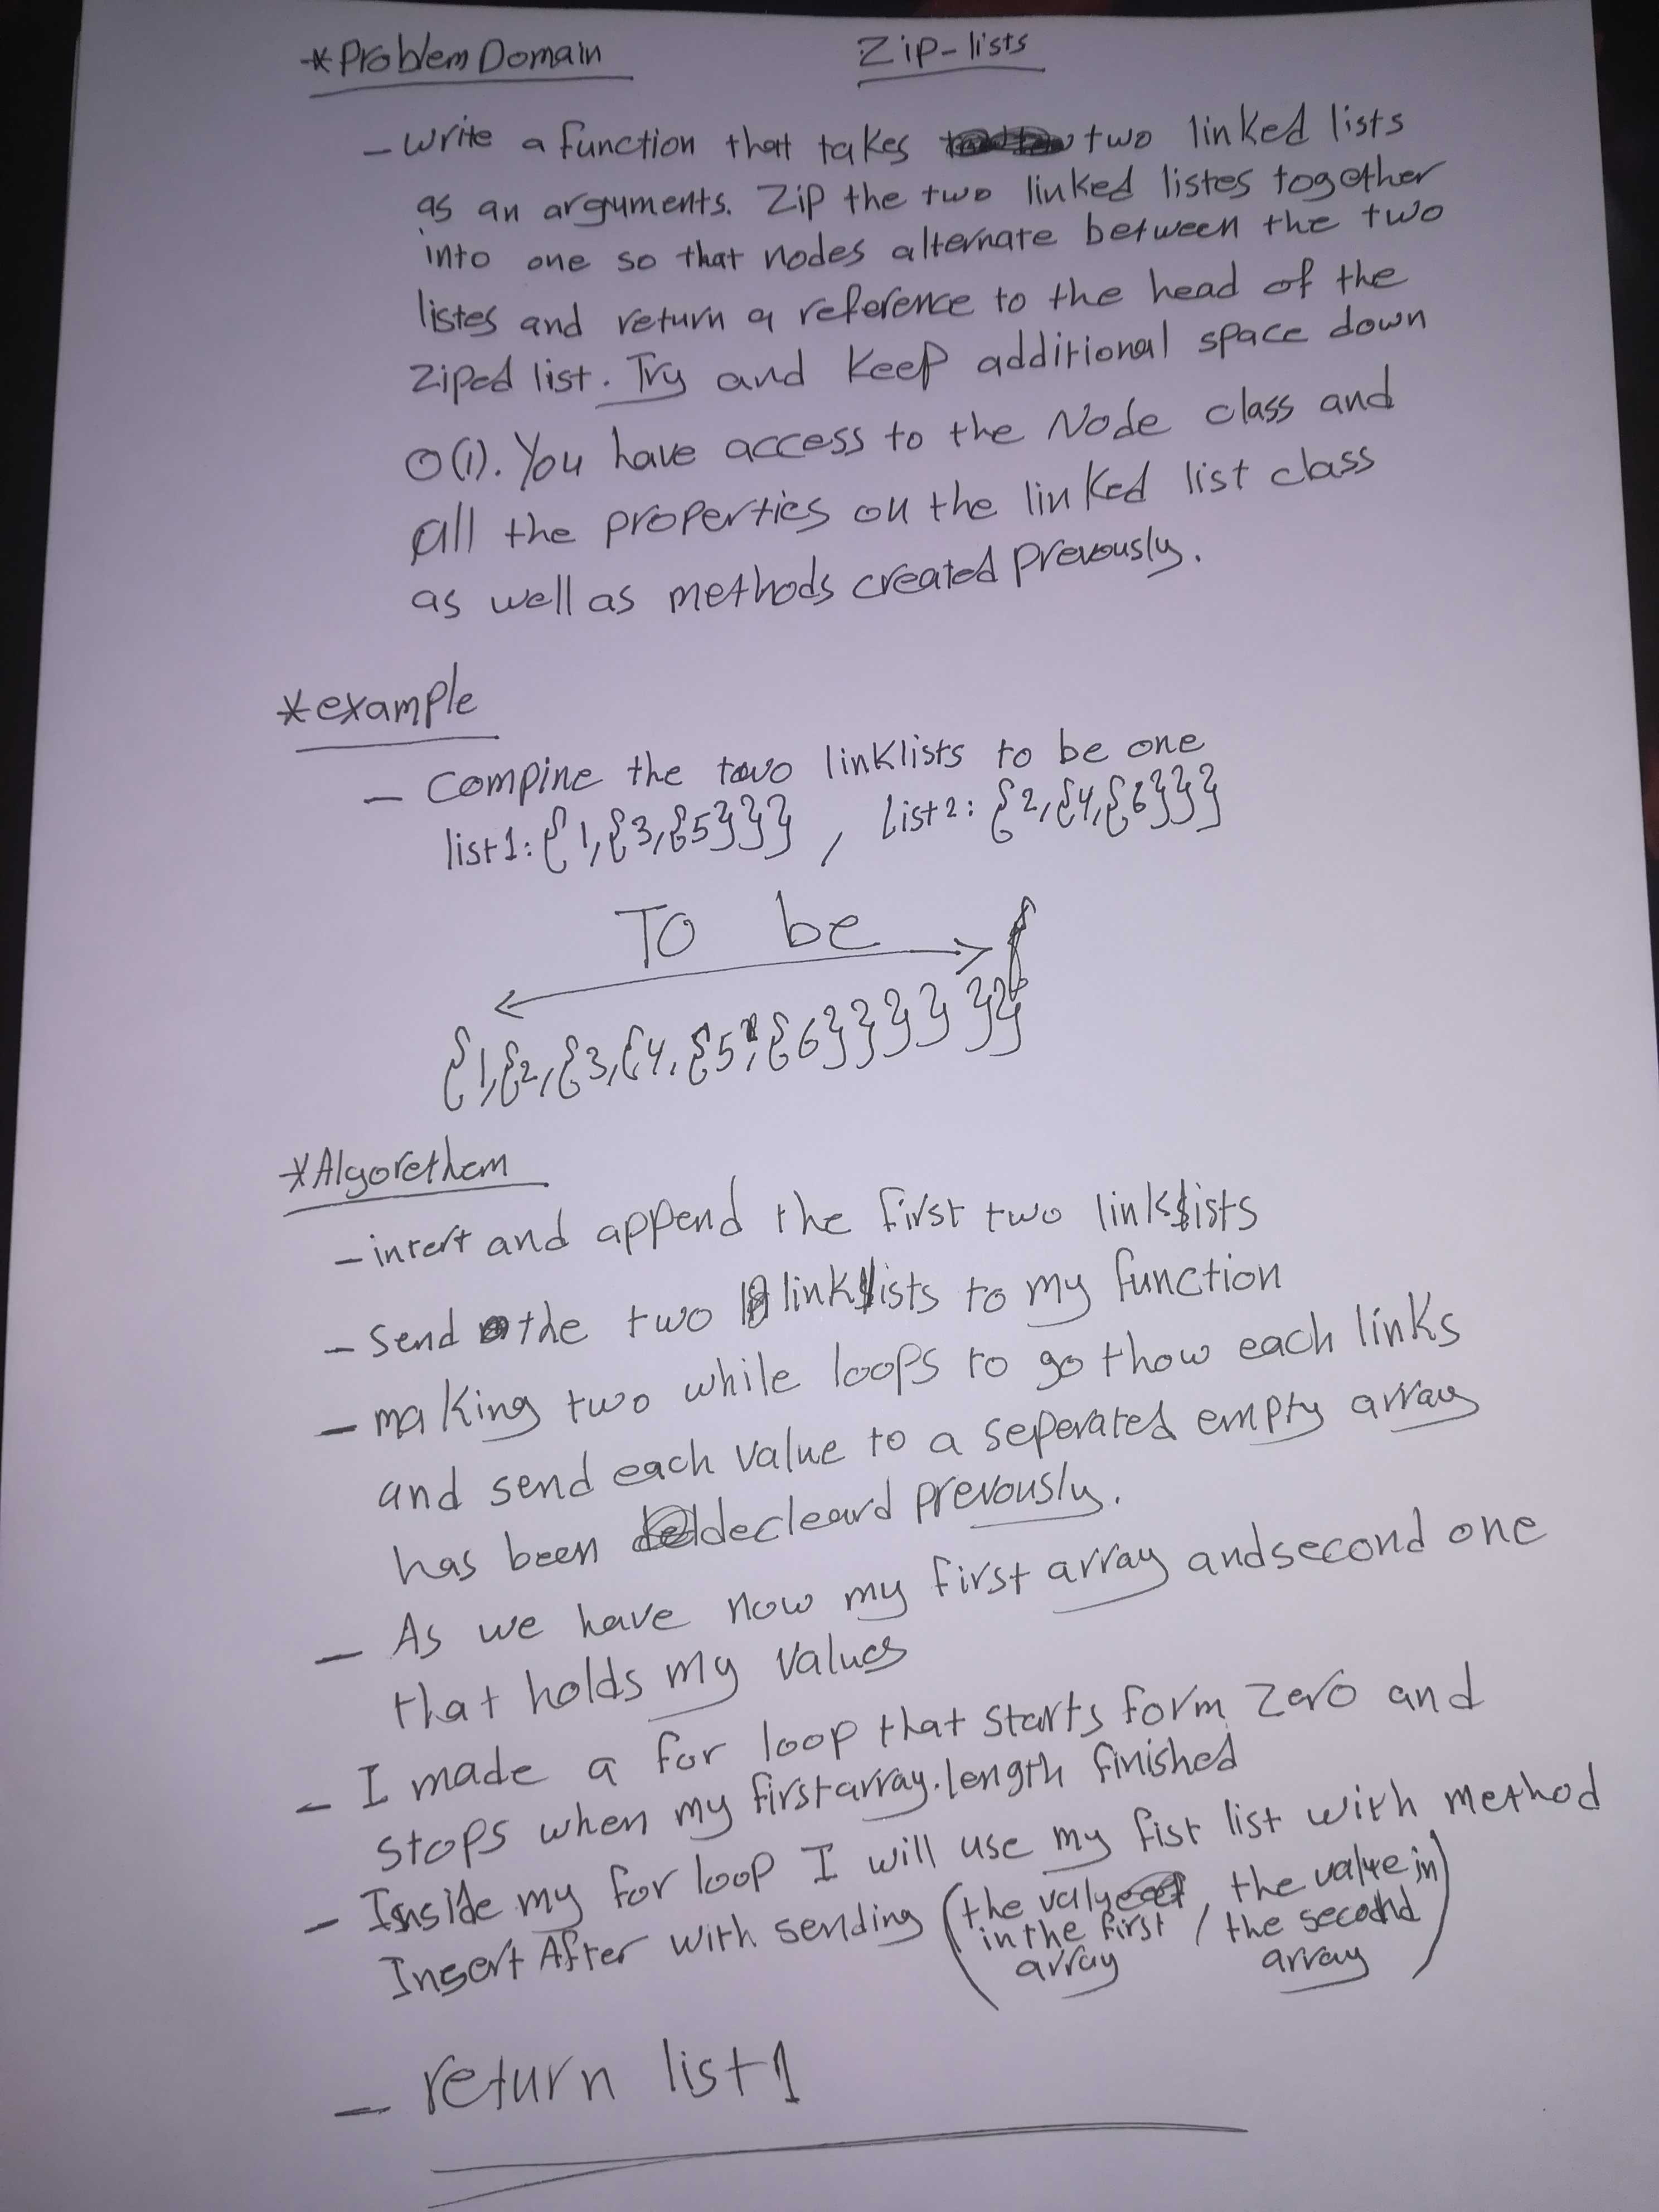 *Problem Domain
Zip-lists
- write a function that takes two linked lists
as an arguments. Zip the two linked listes together
into one so that nodes alternate between the two
listes and return a reference to the head of the
Ziped list. Try and Keep additional space down
O(1). You have access to the Node class and
all the properties on the linked list class
as well as methods created prevously.
*example
- Compine the two linklists to be one
list1: {1,{3,{5}}} , list2: {2,{4,{6}}}
To be
{1,{2,{3,{4,{5,{6}}}}}}
*Algorethem
- intert and append the first two linkslists
- Send the two linklists to my function
- making two while loops to go thow each links
and send each value to a seperated empty array
has been decleard prevously.
- As we have now my first array and second one
that holds my values
- I made a for loop that starts form zero and
stops when my firstarray.length finished
- Inside my for loop I will use my fist list with method
Insert After with sending (the value in the first array , the value in the second array)
- return list1